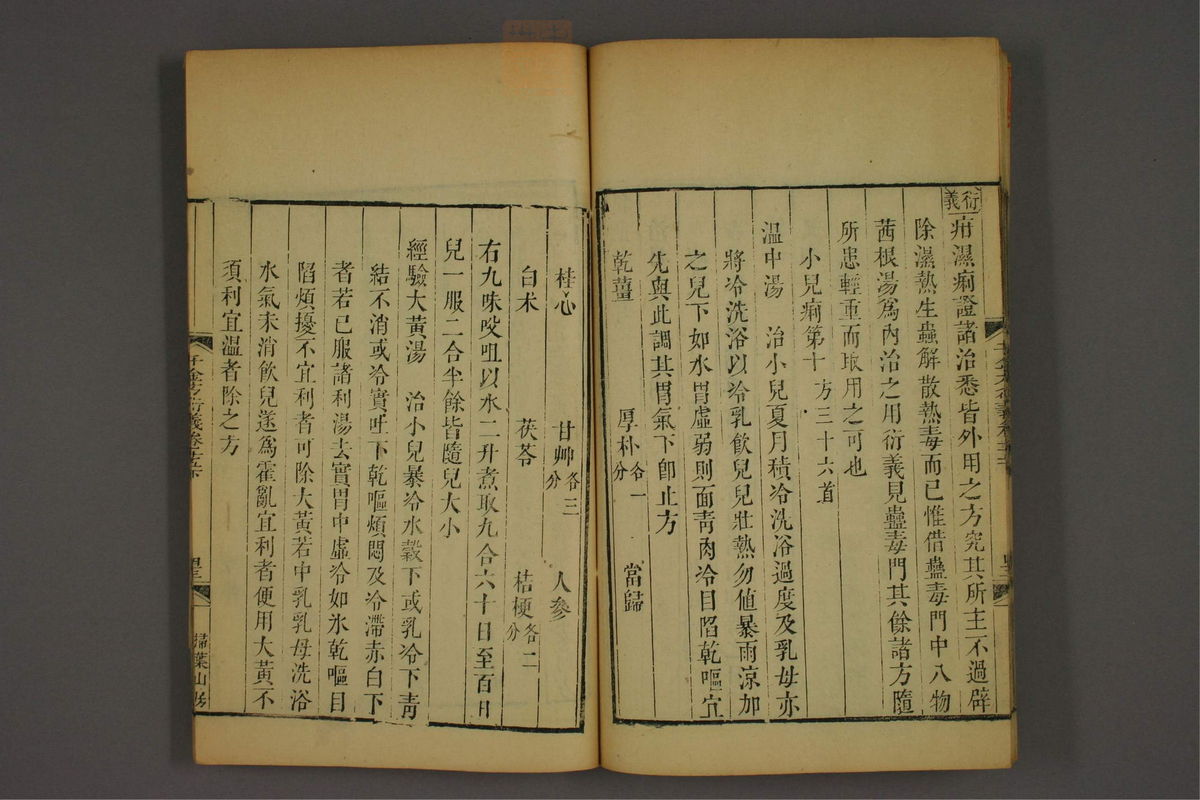 衍義
疳濕痢證諸治悉皆外用之方究其所主不過辟
除濕熱生蟲解散熱毒而已惟借蠱毒門中八物
茜根湯爲內治之用衍義見蠱毒門其餘諸方隨
所患輕重而取用之可也
小兒痢第十 方三十六首
溫中湯 治小兒夏月積冷洗浴過度及乳母亦
將冷洗浴以冷乳飲兒兒壯熱勿値暴雨涼加
之兒下如水胃虛弱則面靑肉冷目陷乾嘔宜
先與此調其胃氣下卽止方
乾薑 厚朴各一分 當歸
桂心 甘艸各三分 人參
白朮 茯苓 桔梗各二分
右九味㕮咀以水二升煮取九合六十日至百日
兒一服二合半餘皆隨兒大小
經驗大黃湯 治小兒暴冷水穀下或乳冷下靑
結不消或冷實吐下乾嘔煩悶及冷滯赤白下
者若已服諸利湯去實胃中虛冷如氷乾嘔目
陷煩擾不宜利者可除大黃若中乳乳母洗浴
水氣未消飲兒遂爲霍亂宜利者便用大黃不
須利宜溫者除之方
千金方衍義卷
掃葉山房